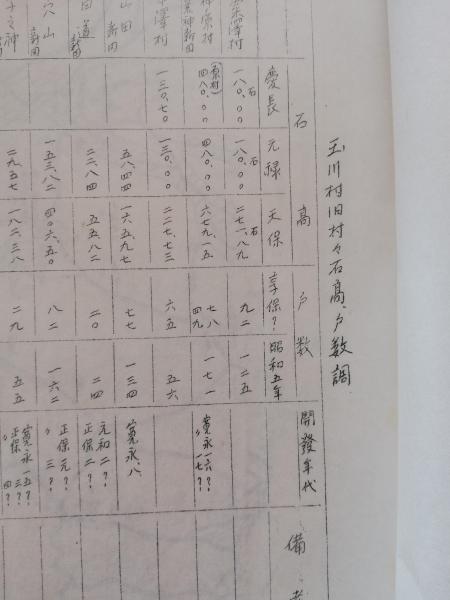 玉川村旧村々石高、戸数調
石高
戸数
開發年代
備考
慶長
元禄
天保
享保?
昭和五年
石
一八〇.〇〇
石
一八〇.〇〇
石
二七一.八九
九二
一二五
(原村)
四八〇.〇〇
四八〇.〇〇
六七九.一五
七八
四九
一七一
寛永一六?
〃一七?
澤村
一三〇.七〇
一三〇.〇〇
二二七.七三
六五
五六
山田新田
五八.四四
一六五.九七
七七
一三四
寛永.八
田道新田
二二.八四
五五.八二
二〇
二四
元和二?
正保二?
穴山新田
一五三.八二
四〇六.五〇
八二
一六二
正保元?
〃三?
之神
二九.五七
一八二.三八
二九
五五
寛永一五?
正保三?
〃四?